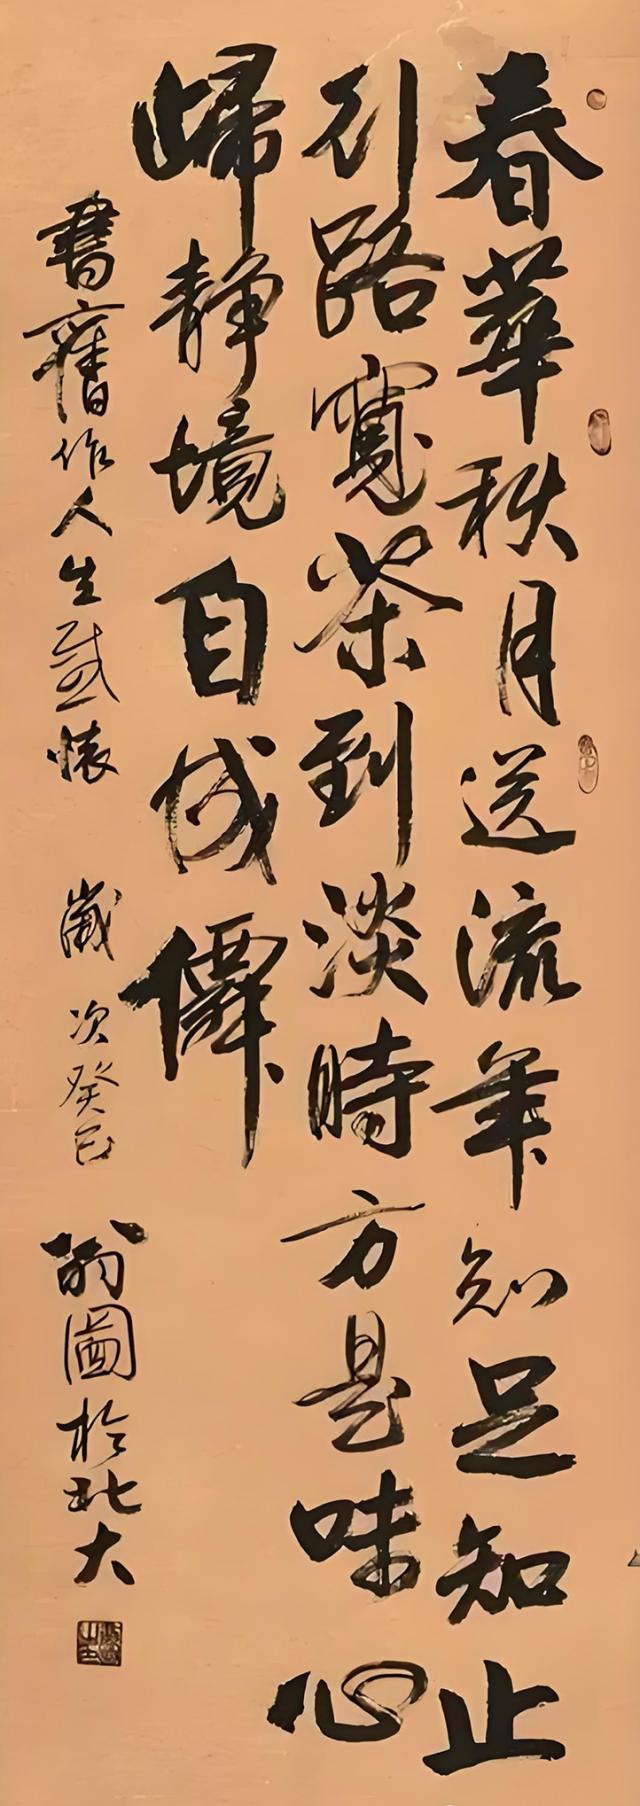 春華秋月送流年知足知止
引路寬茶到淡時方是味心
歸靜境自成僊
書舊作人生感懷 歲次癸巳 翁圖於北大